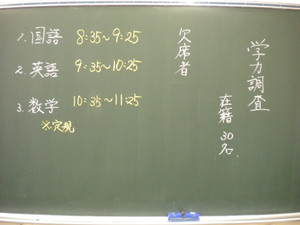 学力調査
在籍 30名
欠席者
1. 国語 8:35~9:25
2. 英語 9:35~10:25
3. 数学 10:35~11:25
※定規